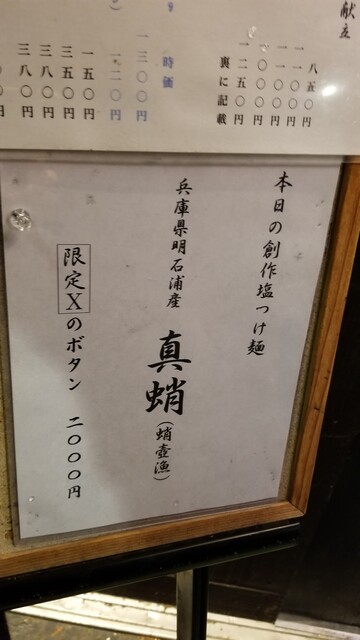 献立
八五〇円
一〇〇円
一〇〇円
一〇〇〇円
一二五〇円
裏に記載
時価
一三〇〇円
一二〇円
一五〇円
三五〇円
三八〇円
三八〇円
本日の創作塩つけ麺
兵庫県明石浦産
真蛸
(蛸壺漁)
限定Xのボタン 二〇〇〇円